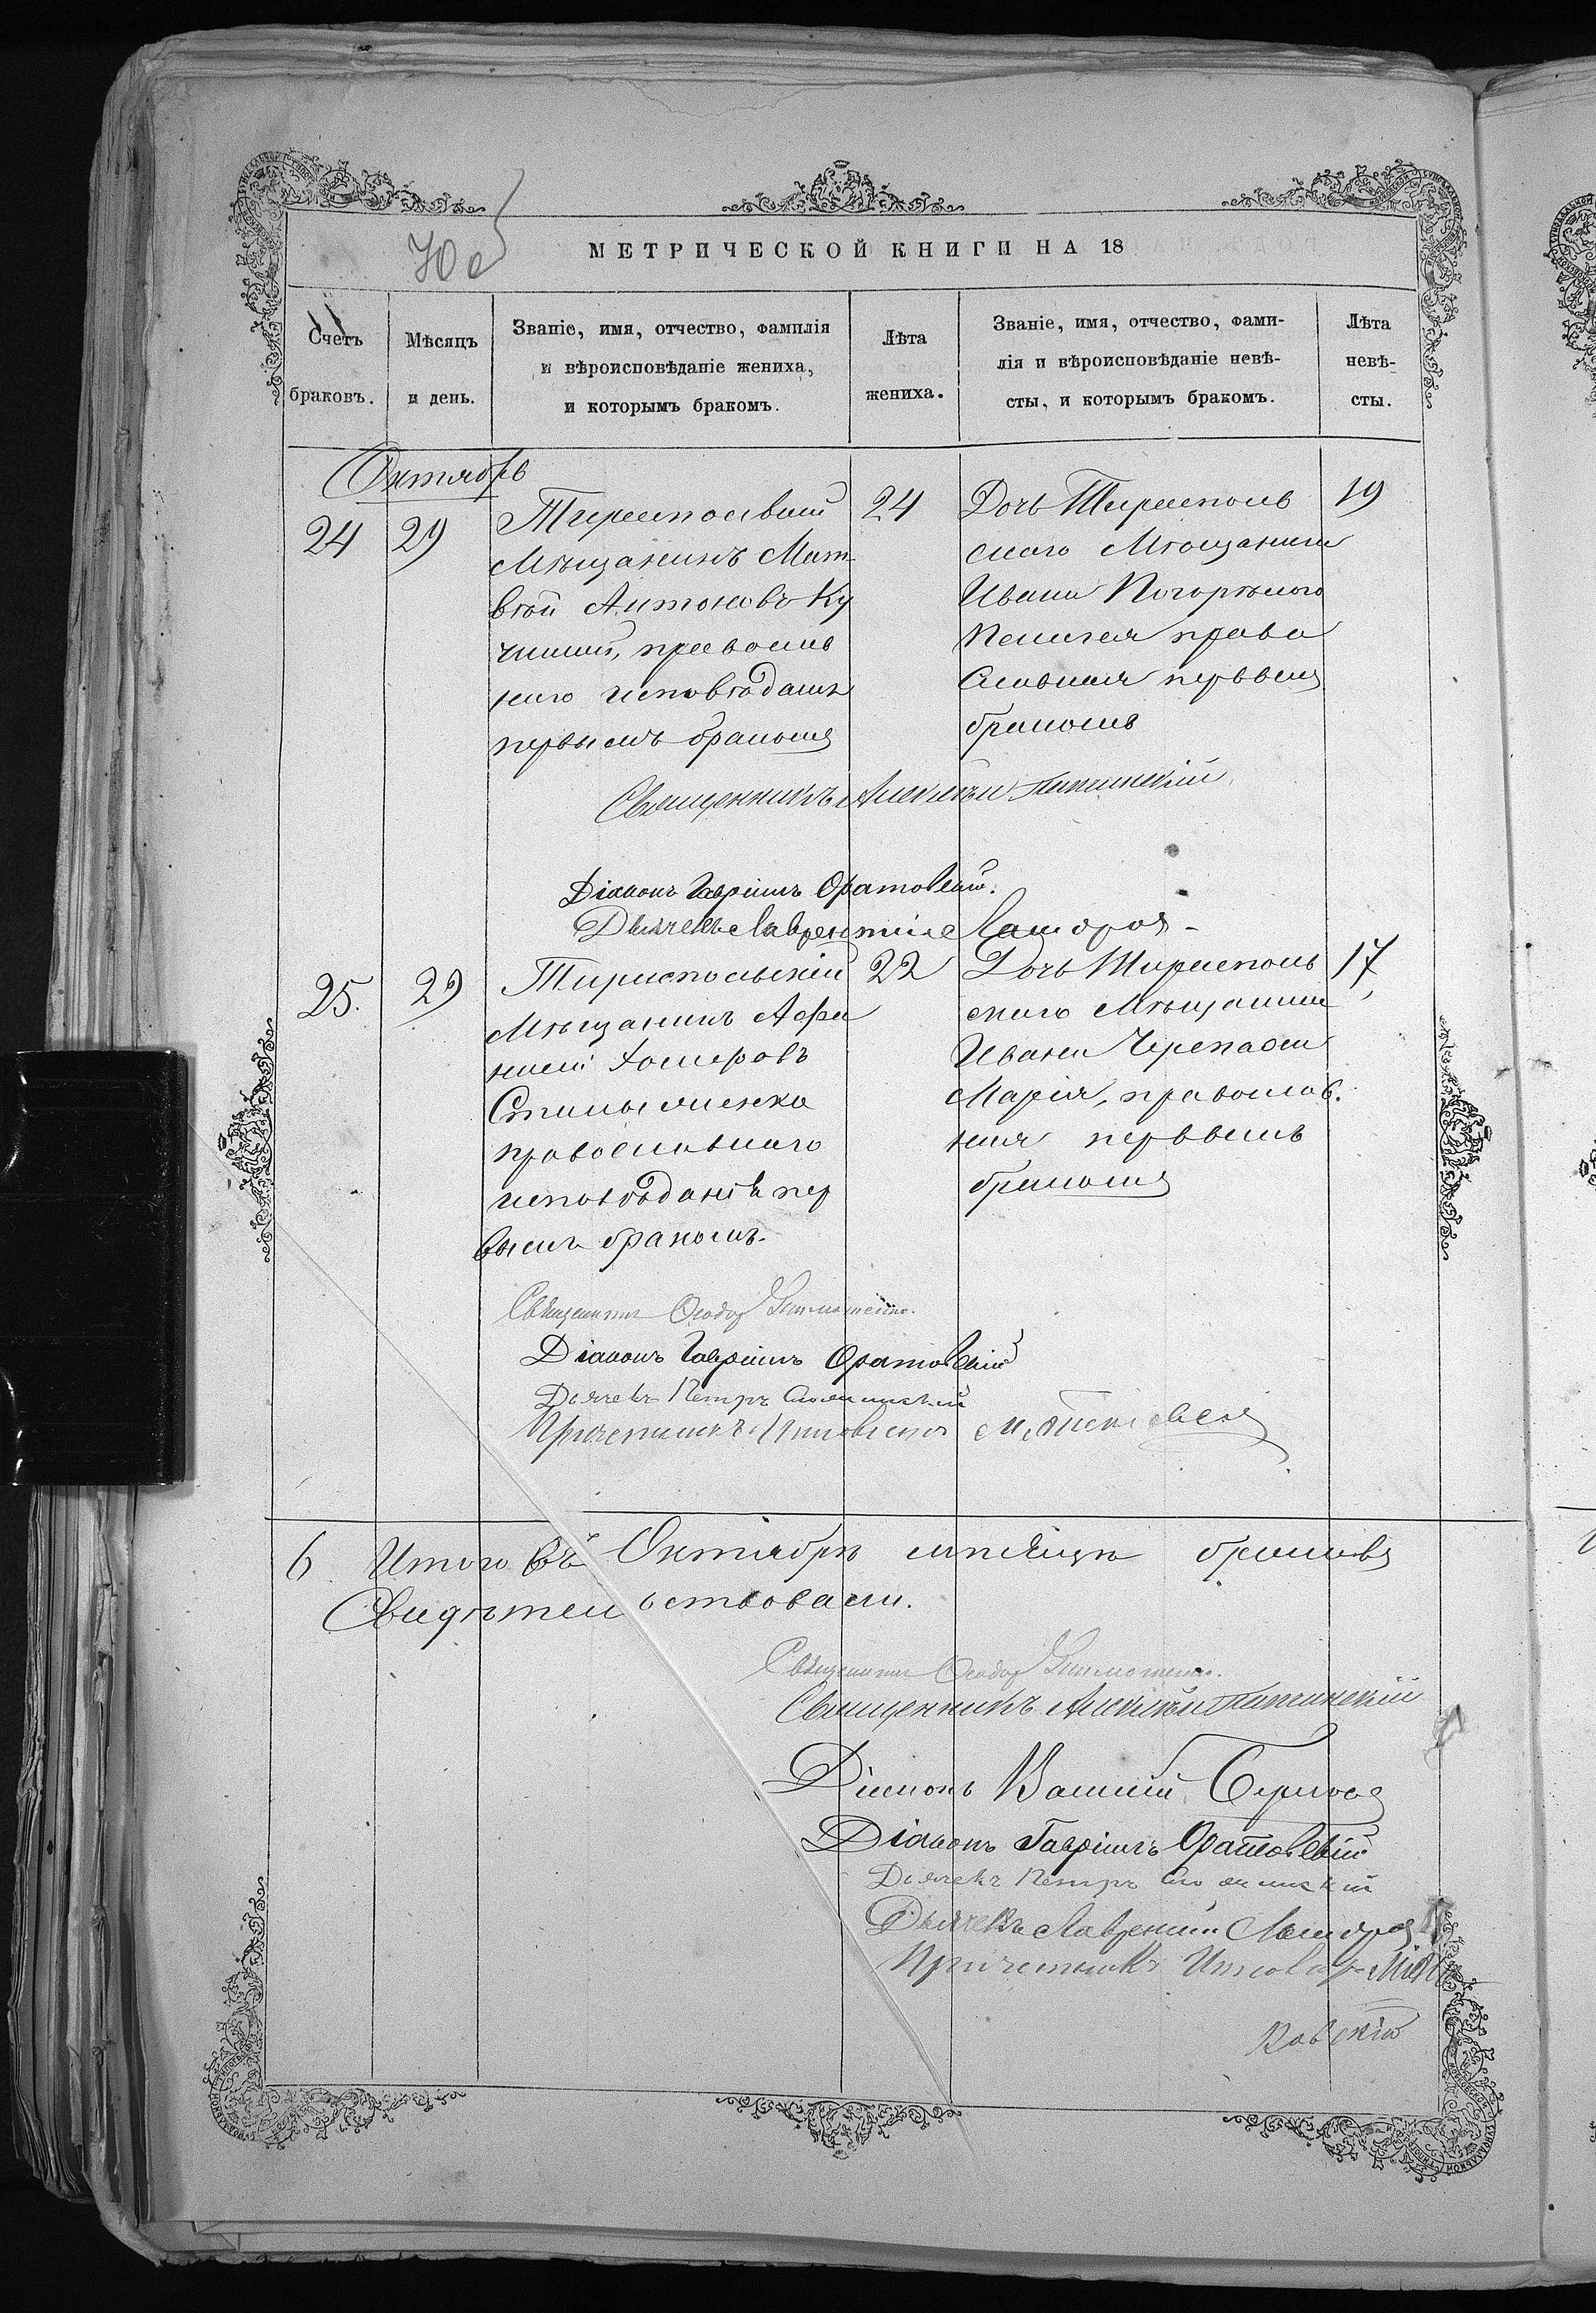 70 об
МЕТРИЧЕСКОЙ КНИГИ НА 18
Счетъ браковъ.
Мѣсяцъ и день.
Званіе, имя, отчество, фамилія
и вѣроисповѣданіе жениха,
и которымъ бракомъ.
Лѣта
жениха.
Званіе, имя, отчество, фами-
лія и вѣроисповѣданіе невѣ-
сты, и которымъ бракомъ.
Лѣта
невѣ-
сты.
Октябрь
24
29
Тираспольскій
Мѣщанинъ Мат-
вѣй Антоновъ Ку
православ
наго исповѣданія
первымъ бракомъ
24
Дочь Тирасполь
скаго Мѣщанина
Ивана Погорѣлого
Пелагея право
славная первымъ
бракомъ
19
Священникъ Алексѣй
Діаконъ Гавріилъ Оратовскій.
Дьячекъ Лаврентій
25.
29
Тираспольскій
Мѣщанинъ Афа
насій
православнаго
исповѣданія пер
вымъ бракомъ.
22
Дочь Тирасполь
скаго Мѣщанина
Ивана Черепахи
Марія, православ.
ная первымъ
бракомъ
17
Священникъ Ѳеодоръ
Діаконъ Гавріилъ Оратовскій
Дьячекъ Петръ
Причетникъ
6 Итого въ Октябрѣ мѣсяцѣ браковъ
Свидѣтельствовали.
Священникъ Ѳеодоръ
Священникъ Алексѣй
Діаконъ Василій
Діаконъ Гавріилъ Оратовскій
Дьячекъ Петръ
Дьячекъ Лаврентій
Причетникъ